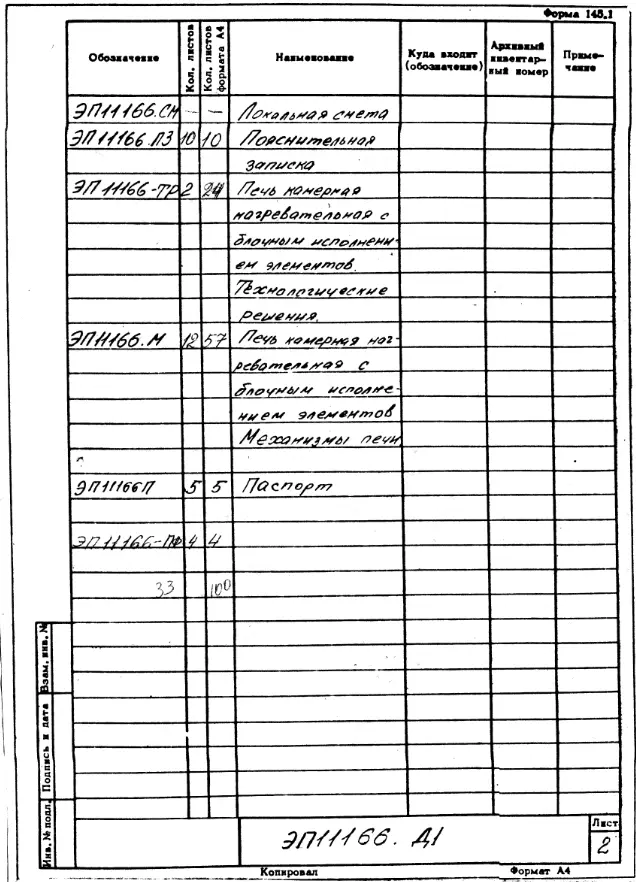 Форма 148.1
Обозначение Кол. листов Кол. листов формата А4 Наименование Куда входит (обозначение) Архивный инвентарный номер Примечание
ЭП11166.СМ — — Локальная смета
ЭП11166.ПЗ 10 10 Пояснительная
записка
ЭП11166-ТР 2 24 Печь камерная
нагревательная с
блочным исполнени-
ем элементов.
Технологические
решения.
ЭП11166.М 12 57 Печь камерная наг-
ревательная с
блочным исполне-
нием элементов
Механизмы печи
ЭП11166П 5 5 Паспорт
ЭП11166-ПФ 4 4
33 100
Взам. инв. №
Подпись и дата
Инв. № подл.
ЭП11166. Д1
Лист
2
Копировал Формат А4